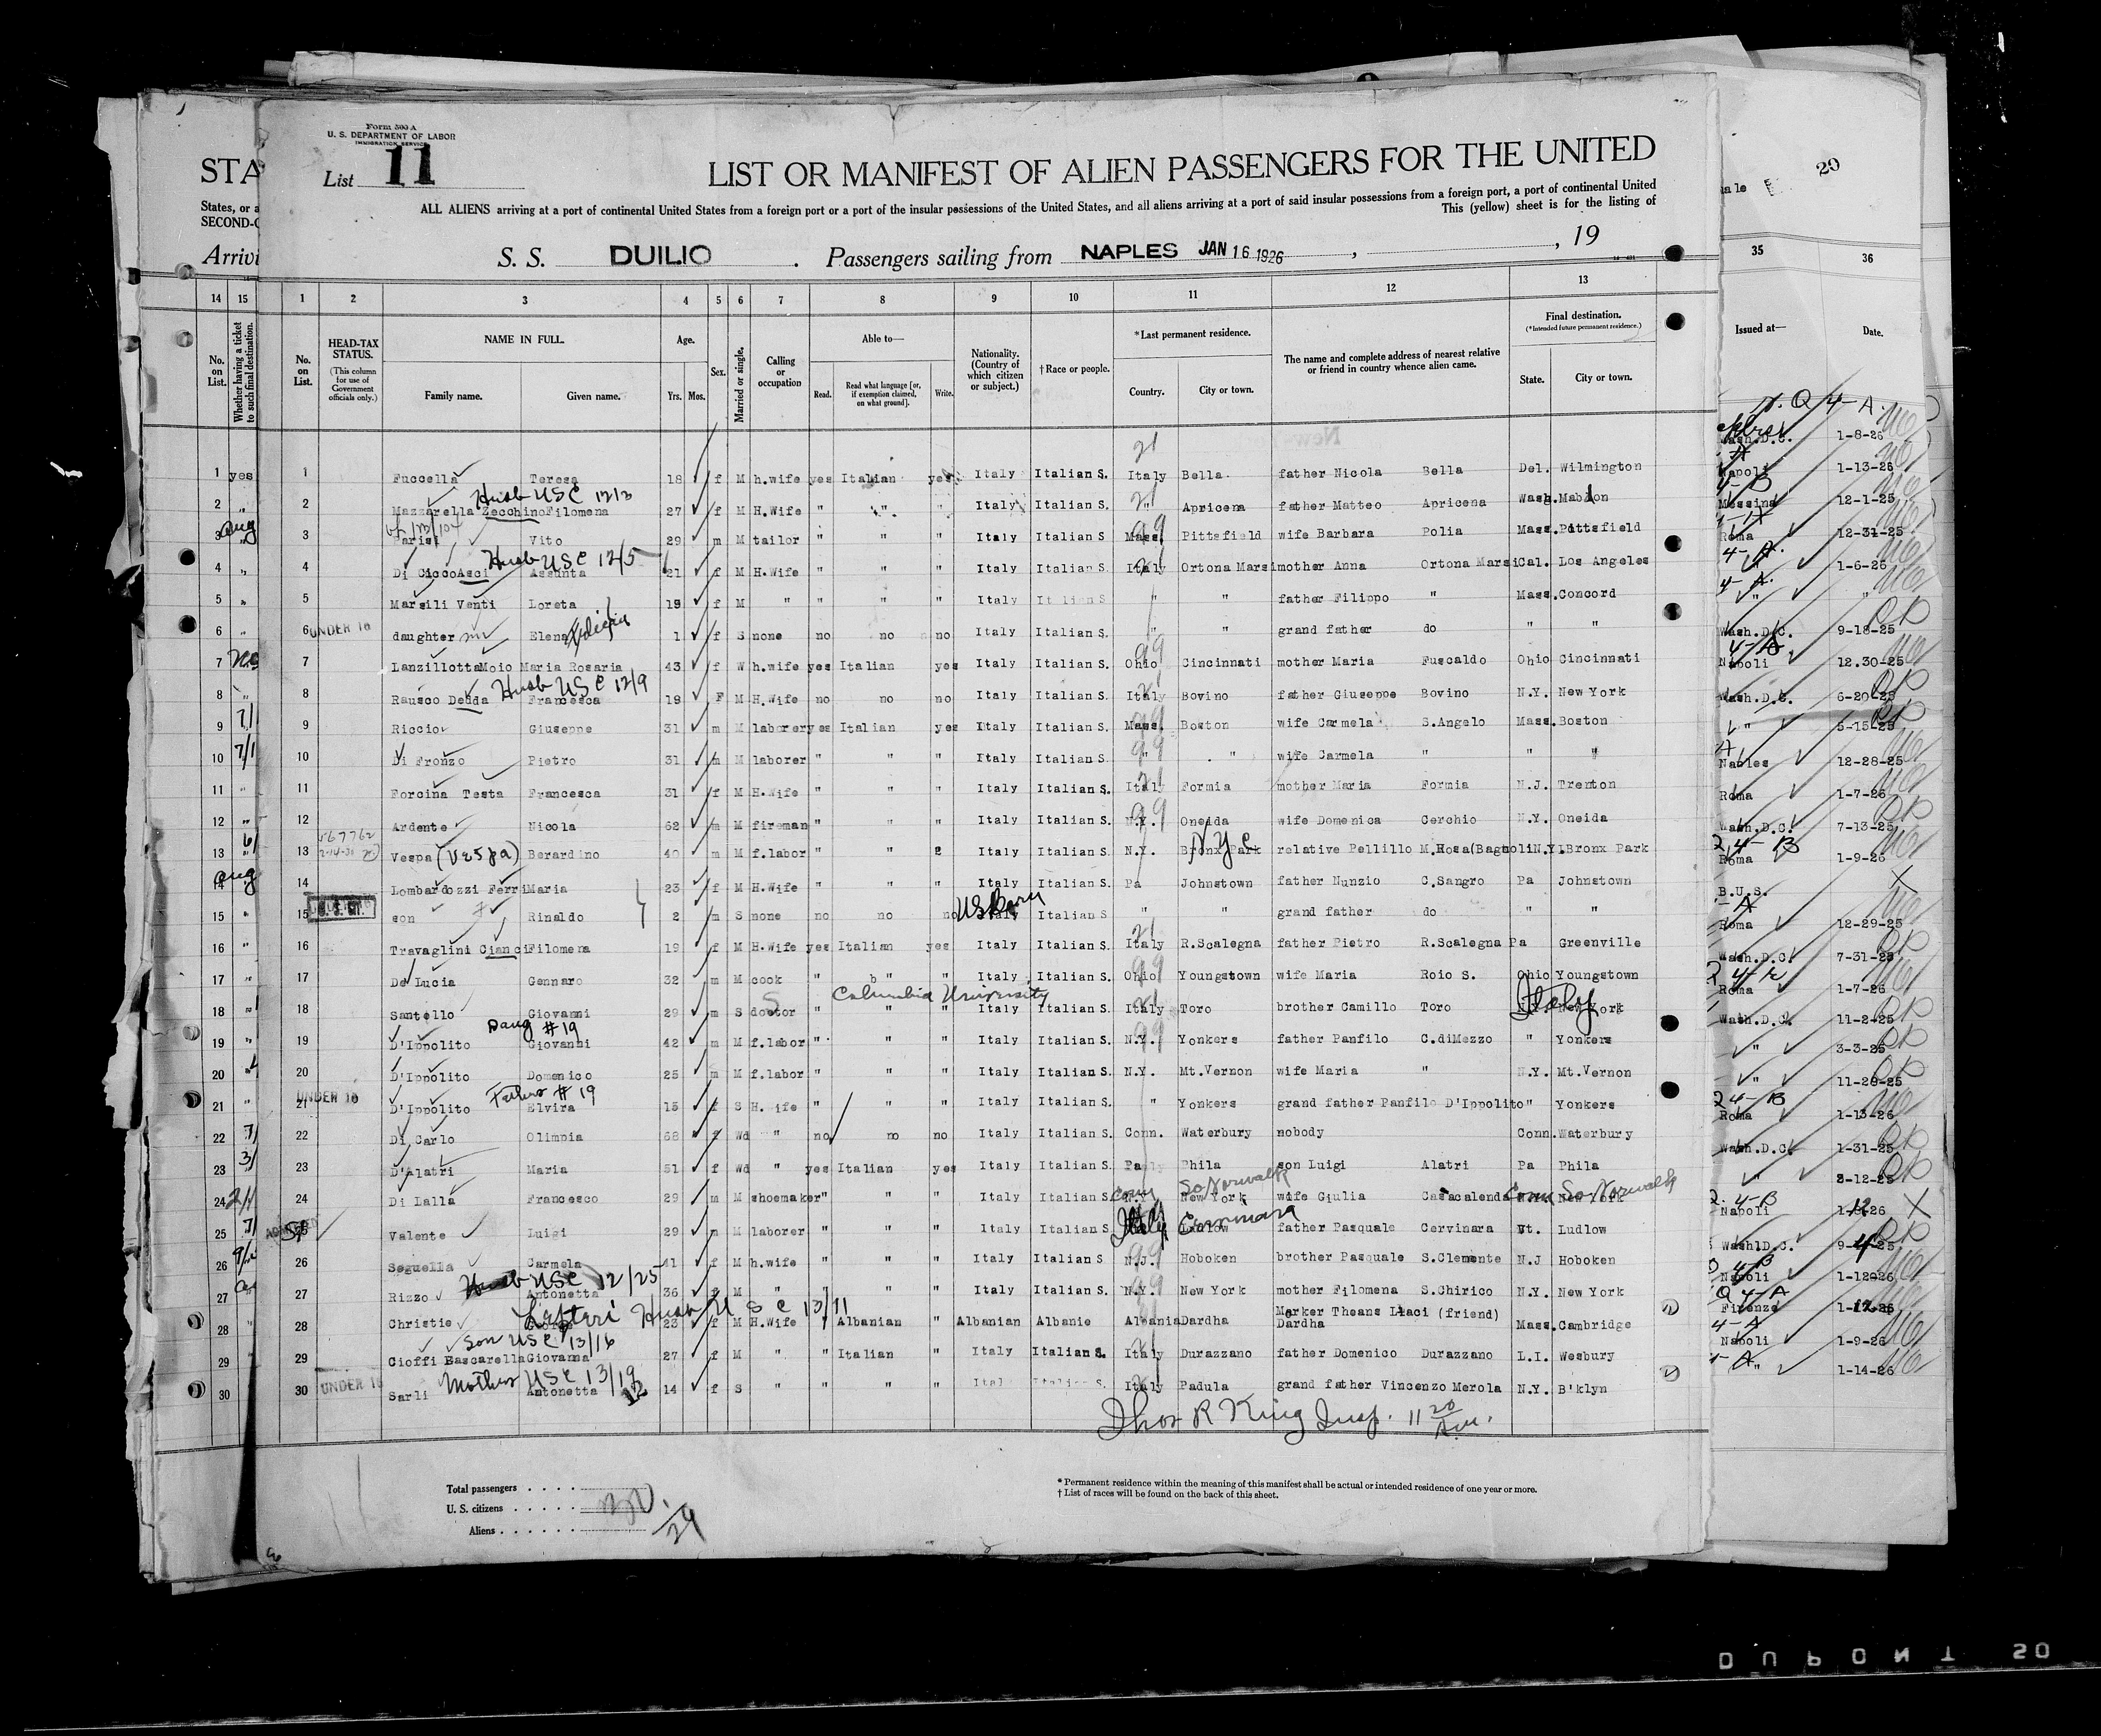 Form 500 A
U. S. DEPARTMENT OF LABOR
IMMIGRATION SERVICE
List 11
LIST OR MANIFEST OF ALIEN PASSENGERS FOR THE UNITED
ALL ALIENS arriving at a port of continental United States from a foreign port or a port of the insular possessions of the United States, and all aliens arriving at a port of said insular possessions from a foreign port, a port of continental United
This (yellow) sheet is for the listing of
STA
States, or a
SECOND-C
Arrivi
S. S. DUILIO. Passengers sailing from NAPLES JAN 16 1926, , 19
29
14 15 1 2 3 4 5 6 7 8 9 10 11 12 13 35 36
No. on List.
Whether having a ticket to such final destination.
No. on List.
HEAD-TAX STATUS.
(This column for use of Government officials only.)
NAME IN FULL.
Family name. Given name.
Age.
Yrs. Mos.
Sex.
Married or single.
Calling or occupation
Able to—
Read. Read what language [or, if exemption claimed, on what ground]. Write.
Nationality. (Country of which citizen or subject.)
†Race or people.
*Last permanent residence.
Country. City or town.
The name and complete address of nearest relative or friend in country whence alien came.
Final destination.
(*Intended future permanent residence.)
State. City or town.
Issued at— Date.
1 yes 1 Fuccella Teresa 18 f M h.wife yes Italian yes Italy Italian S. Italy Bella father Nicola Bella Del. Wilmington
Husb USC 12/3
2 " 2 Mazzarella Zecchino Filomena 27 f M H.Wife " " " Italy Italian S. " Apricena father Matteo Apricena Wash.
3 " 3 Parisi Vito 29 m M tailor " " " Italy Italian S Mass. Pittsfield wife Barbara Polia Mass. Pittsfield
Husb USC 12/5
4 " 4 Di Cicco Asci Assunta 21 f M H.Wife " " " Italy Italian S Italy Ortona Marsi mother Anna Ortona Marsi Cal. Los Angeles
5 " 5 Marsili Venti Loreta 19 f M " " " " Italy Italian S " " father Filippo " Mass. Concord
6 " 6 UNDER 16 daughter Elena 1 f S none no no no Italy Italian S. " " grand father do " "
7 7 Lanzillotta Moio Maria Rosaria 43 f W h.wife yes Italian yes Italy Italian S. Ohio Cincinnati mother Maria Fuscaldo Ohio Cincinnati
Husb USC 12/9
8 " 8 Rausco Dedda Francesca 19 F M H.Wife no no no Italy Italian S. Italy Bovino father Giuseppe Bovino N.Y. New York
9 9 Riccio Giuseppe 31 m M laborer yes Italian yes Italy Italian S. Mass. Boston wife Carmela S.Angelo Mass. Boston
10 10 Di Fronzo Pietro 31 m M laborer " " " Italy Italian S. " " wife Carmela " " "
11 " 11 Forcina Testa Francesca 31 f M H.Wife " " " Italy Italian S. Italy Formia mother Maria Formia N.J. Trenton
12 " 12 Ardente Nicola 52 m M fireman " " " Italy Italian S. N.Y. Oneida wife Domenica Cerchio N.Y. Oneida
13 13 Vespa (Vespa) Berardino 40 m M f.labor " " Italy Italian S. N.Y. Bronx Park NYC relative Pellillo M.Rosa(Bagnoli N.Y. Bronx Park
14 14 Lombardozzi Ferri Maria 23 f M H.Wife " " " Italy Italian S. Pa Johnstown father Nunzio C.Sangro Pa Johnstown
15 " 15 son Rinaldo 2 m S none no no no Italy US Born Italian S " " grand father do " "
16 " 16 Travaglini Cianci Filomena 19 f M H.Wife yes Italian yes Italy Italian S. Italy R.Scalegna father Pietro R.Scalegna Pa Greenville
17 " 17 De Lucia Gennaro 32 m M cook " " " Italy Italian S. Ohio Youngstown wife Maria Roio S. Ohio Youngstown
Columbia University
18 " 18 Santello Giovanni 29 m S doctor " " " Italy Italian S. Italy Toro brother Camillo Toro N.Y. New York Italy
Daug #19
19 " 19 D'Ippolito Giovanni 42 m M f.labor " " " Italy Italian S. N.Y. Yonkers father Panfilo C.diMezzo " Yonkers
20 " 20 D'Ippolito Domenico 25 m M f.labor " " " Italy Italian S. N.Y. Mt.Vernon wife Maria " N.Y. Mt.Vernon
Father #19
21 " 21 UNDER 16 D'Ippolito Elvira 15 f S H.Wife " " " Italy Italian S. " Yonkers grand father Panfilo D'Ippolito " Yonkers
22 22 Di Carlo Olimpia 68 f Wd " no no no Italy Italian S. Conn. Waterbury nobody Conn. Waterbury
23 23 D'Alatri Maria 51 f Wd " yes Italian yes Italy Italian S. Pa Phila son Luigi Alatri Pa Phila
Conn So Norwalk Conn So Norwalk
24 24 Di Lalla Francesco 29 m M shoemaker " " " Italy Italian S. N.Y. New York wife Giulia Casacalenda N.Y. New York
25 25 Valente Luigi 29 m M laborer " " " Italy Italian S. Italy Cervinara Ludlow father Pasquale Cervinara Vt. Ludlow
26 26 Seguella Carmela 41 f M h.wife " " " Italy Italian S N.J. Hoboken brother Pasquale S.Clemente N.J Hoboken
Husb USC 12/25
27 27 Rizzo Antonetta 36 f M " " " " Italy Italian S. N.Y. New York mother Filomena S.Chirico N.Y. New York
Husb USC 13/11
28 28 Christie 23 f M H.Wife " Albanian " Albanian Albanie Albania Dardha (friend) Dardha Mass. Cambridge
Son USC 13/16
29 29 Cioffi Bascarella Giovanna 27 f M " " Italian " Italy Italian S. Italy Durazzano father Domenico Durazzano L.I. Wesbury
Mother USC 13/19
30 30 UNDER 16 Sarli Antonetta 14 f S " " " " Italy Italian S. Italy Padula grand father Vincenzo Merola N.Y. B'klyn
Thos R King Insp. 11 20 AM.
Wash.D.C. 1-8-26
Napoli 1-13-26
Messina 12-1-25
Roma 12-31-25
1-6-26
" "
Wash.D.C. 9-18-25
Napoli 12.30-25
Wash.D.C. 6-20-25
" 5-15-25
Naples 12-28-25
Roma 1-7-26
Wash.D.C. 7-13-25
Roma 1-9-26
B.U.S.
Roma 12-29-25
Wash.D.C. 7-31-25
Roma 1-7-26
Wash.D.C. 11-2-25
" 3-3-25
" 11-28-25
Roma 1-13-26
Wash.D.C. 1-31-25
" 8-12-25
Napoli
Wash.D.C. 9-4-25
Napoli 1-12-26
Firenze
Napoli 1-9-26
" 1-14-26
Total passengers
U. S. citizens
Aliens
* Permanent residence within the meaning of this manifest shall be actual or intended residence of one year or more.
† List of races will be found on the back of this sheet.
DUPONT 20